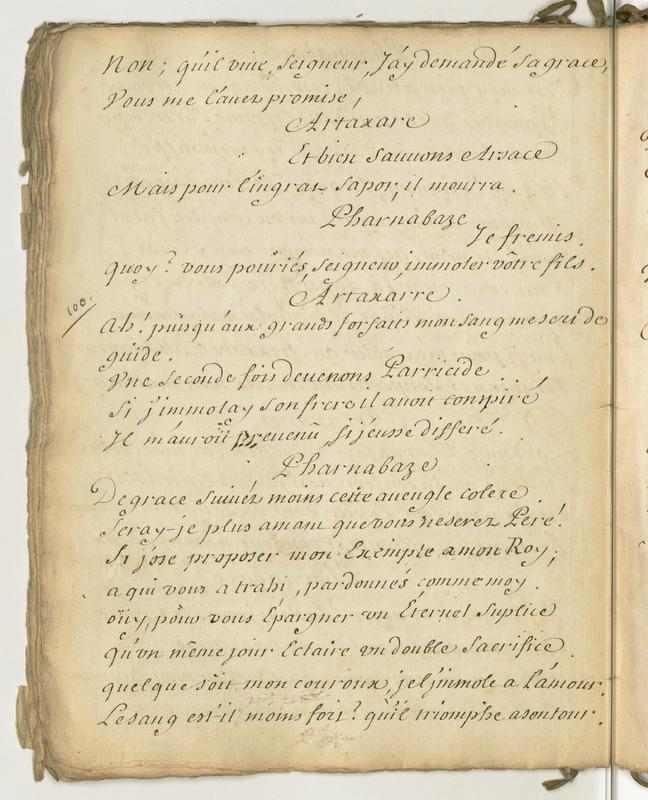 Non; qu'il vive, seigneur, J'ay demandé sa grace,
Vous me l'avez promise,
Artaxare
Et bien sauvons Arsace
Mais pour l'ingrat Sapor, il mourra.
Pharnabaze
Je fremis.
quoy? vous pouriés, seigneur, immoler vôtre fils.
Artaxarre.
100.
Ah! puisqu'aux grands forfaits mon sang me sert de
guide.
Une seconde fois devenons Parricide
Si j'immolay son frere il avoit conspiré
Il m'auroit prevenû, si j'eusse differé.
Pharnabaze
De grace suivéz moins cette aveugle colere.
Seray-je plus amant que vous ne serez Peré!
Si j'ose proposer mon Exemple a mon Roy;
a qui vous a trahi, pardonnés comme moy.
oüy, pour vous Épargner un Éternel Suplice
qu'un même jour Eclaire un double Sacrifice.
quelque soit mon couroux, je l'jmmole a L'amour.
Le sang est-il moins fort? qu'il triomphe a son tour.